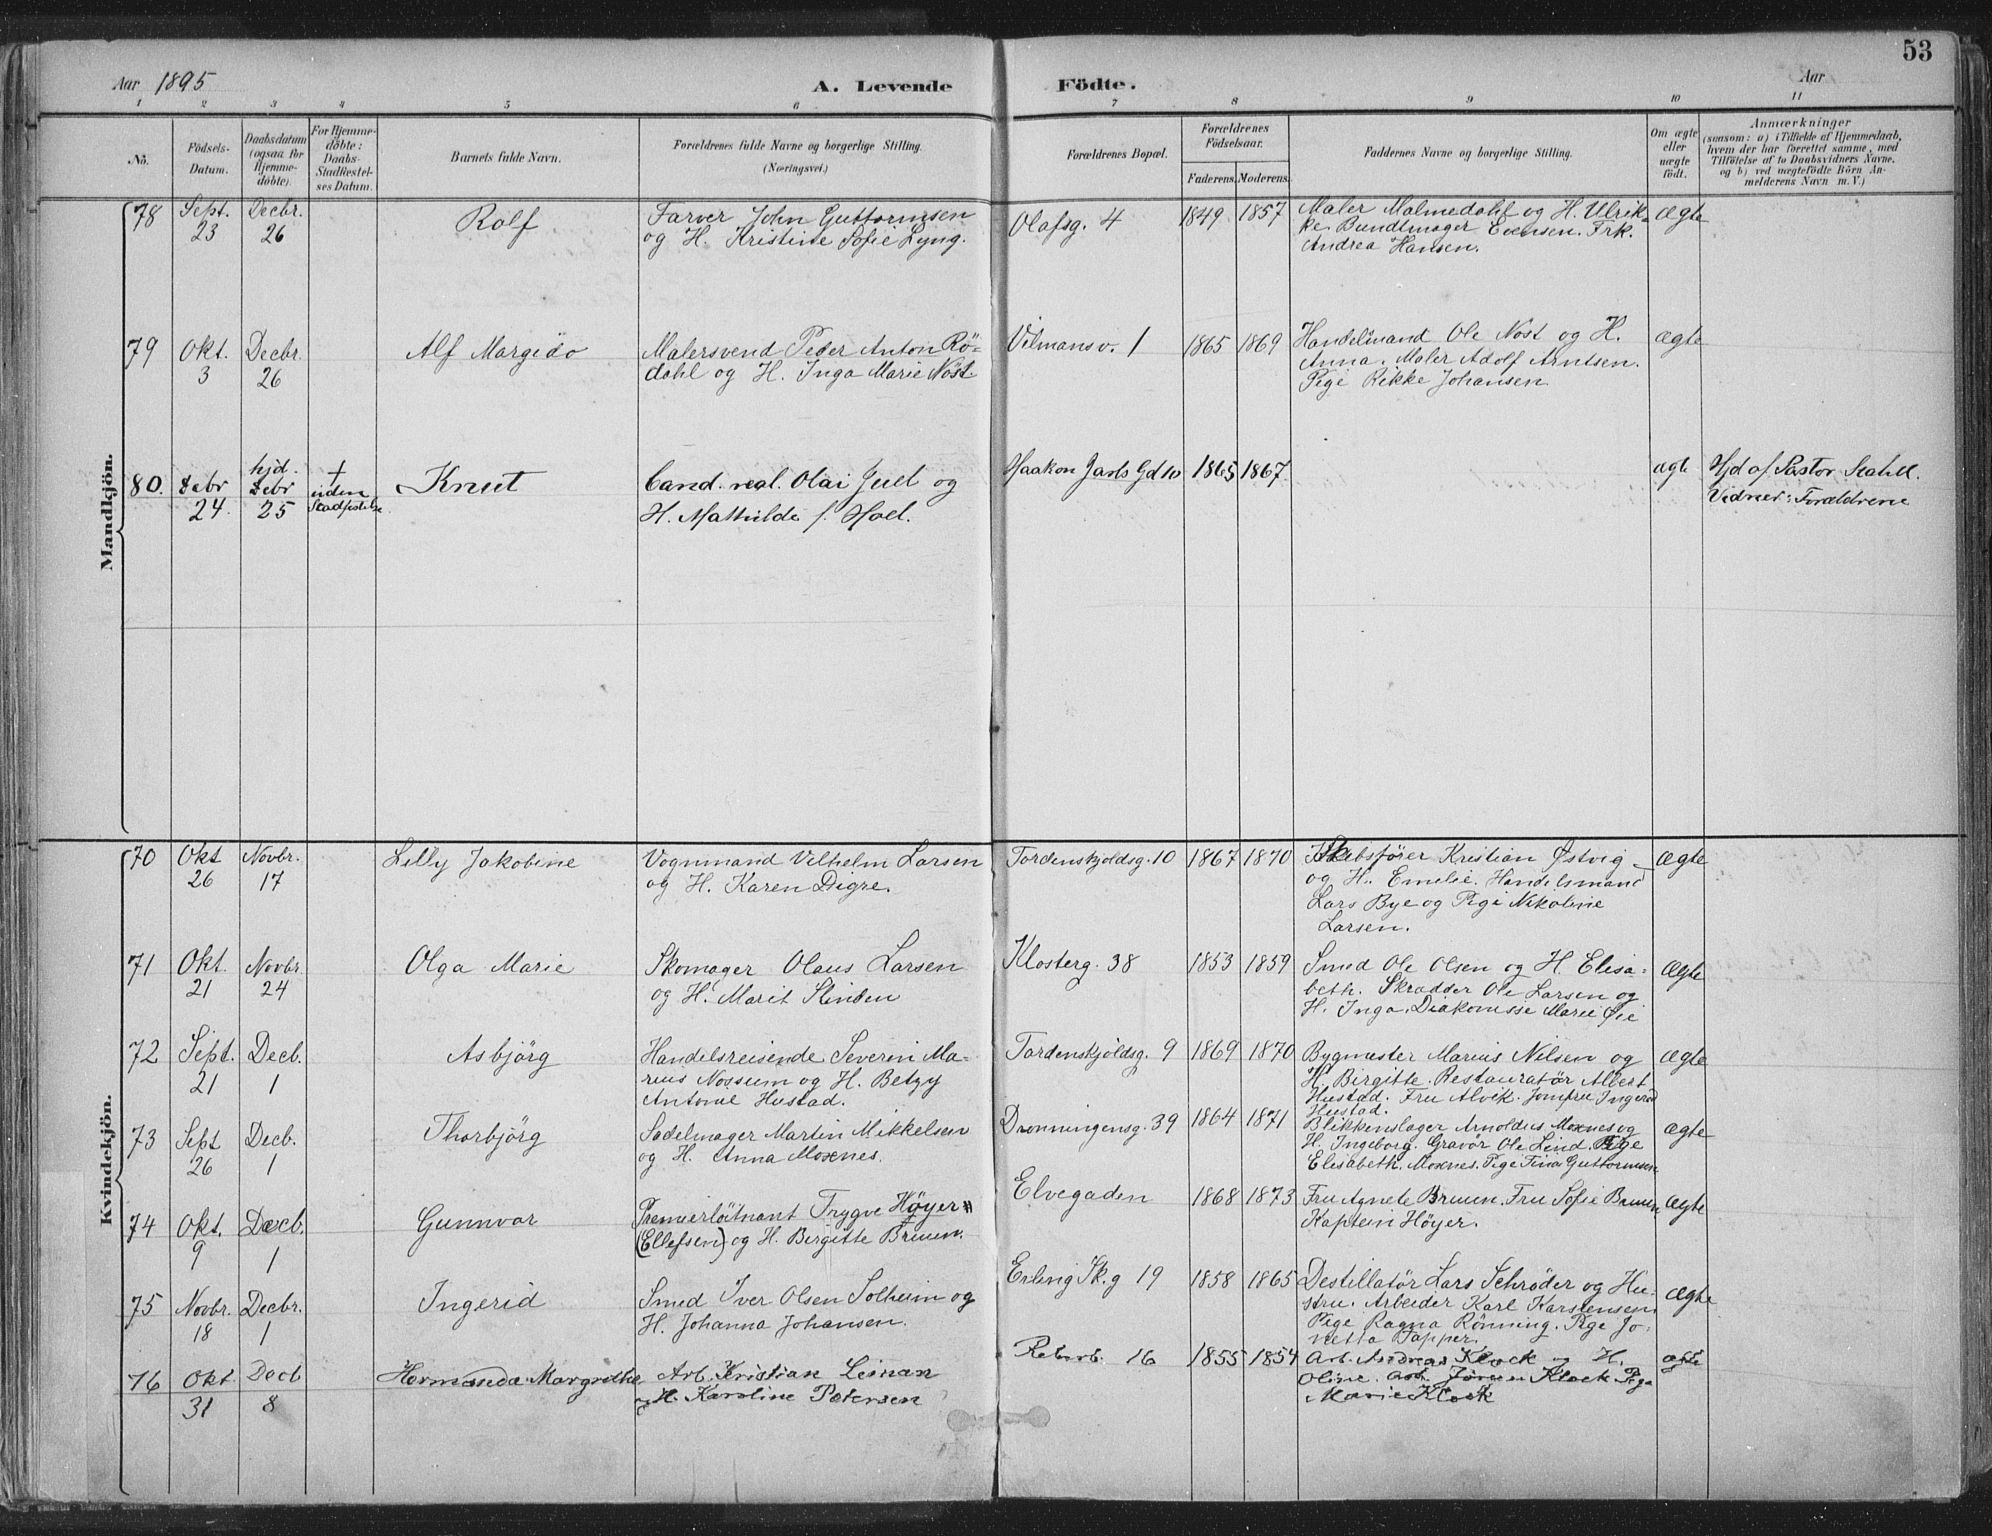 53
Aar 1895
A. Levende Födte.
Aar
1 2 3 4 5 6 7 8 9 10 11
No.
Födsels-
Datum.
Daabsdatum
(ogsaa for
Hjemme-
döbte).
For Hjemme-
döbte:
Daabs-
Stadfæstel-
ses Datum.
Barnets fulde Navn.
Forældrenes fulde Navne og borgerlige Stilling.
(Næringsvei.)
Forældrenes Bopæl.
Forældrenes
Födselsaar.
Faderens. Moderens.
Faddernes Navne og borgerlige Stilling.
Om ægte
eller
uægte
födt.
Anmærkninger
(saasom: a) i Tilfælde af Hjemmedaab,
hvem der har forrettet samme, med
Tilföielse af to Daabsvidners Navne,
og b) ved uægtefödte Börn An-
melderens Navn m. V.)
Mandkjön.
78
Sept.
23
Decbr.
26
Rolf
Farver John Guttormsen
og H. Kristine Sofie Lyng.
Olafsg. 4
1849 1857
Maler Malmedahl og H. Ulrik-
ke. Bundtmager Evensen. Frk.
Andrea Hansen.
ægte
79
Okt.
3
Decbr.
26
Alf Margido
Malersvend Peder Anton Rö-
dahl og H. Inga Marie Nost.
Vilmansv. 1
1865 1869
Handelmand Ole Nost og H.
Anna. Maler Adolf Arntsen.
Pige Rikke Johansen
ægte
80.
Debr
24.
hjd.
Debr
25
+
uden
Stadfæstelse
Knut
Cand. real. Olai Juel og
H. Mathilde f. Hoel.
Haakon Jarls Gd 10
1865 1867
ægte
Hjd af Pastor
Vidner: Forældrene
Kvindekjön.
70
Okt
26
Novbr.
17
Lilly Jakobine
Vognmand Vilhelm Larsen
og H. Karen Digre.
Tordenskjoldsg. 10
1867 1870
Skibsfører Kristian Østvig
og H. Emelie. Handelsmand
Lars Bye og Pige Nikoline
Larsen.
ægte
71
Okt.
21
Novbr.
24
Olga Marie
Skomager Olaus Larsen
og H. Marit Slinden
Klosterg. 38
1853 1859
Smed Ole Olsen og H. Elisa-
beth. Skrædder Ole Larsen og
H. Inga. Diakonisse Marie Øie
ægte
72
Sept.
21
Decb.
1
Asbjörg
Handelsreisende Severin Ma-
rius Nossum og H. Betzy
Antonie Hustad.
Tordenskjoldsg. 9
1869 1870
Bygmester Marius Nilsen og
H. Birgitte. Restauratør Albert
Hustad. Fru Alvik. Jomfru Ingerid
Hustad.
ægte
73
Sept
26
Decb.
1
Thorbjörg
Sadelmager Martin Mikkelsen
og H. Anna Moxnes.
Dronningensg. 39
1864 1871
Blikkenslager Arnoldus Moxnes og
H. Ingeborg. Gravør Ole Lind. Pige
Elisabeth. Moxnes. Pige Fina Guttormsen
ægte
74
Okt.
9
Decb.
1
Gunnvor
Premierløitnant Trygve Höyer
(Ellefsen) og H. Birgitte Bruun.
Elvegaden
1868 1873
Fru Agnete Bruun. Fru Sofie Bruun
Kaptein Höyer.
ægte
75
Novbr.
18
Decbr.
1
Ingerid
Smed Iver Olsen Solheim og
H. Johanna Johansen.
Erling Sk.g 19
1858 1865
Destillatör Lars Schrøder og Hu-
stru. Arbeider Karl Karstensen.
Pige Ragna Rönning. Pige Jo-
netta Papper.
ægte
76
Okt
31
Decb
8
Hermanda Margrethe
Arb. Kristian Leinan
og H. Karoline Petersen
Reberb. 16
1855 1854
Arb. Andreas Klock og H.
Oline. Arb. Jörgen Klock Pige
Marie Klock
ægte